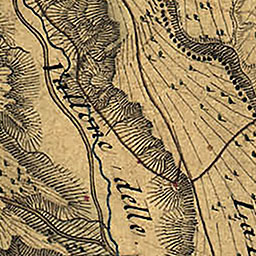 Vallone delle
La